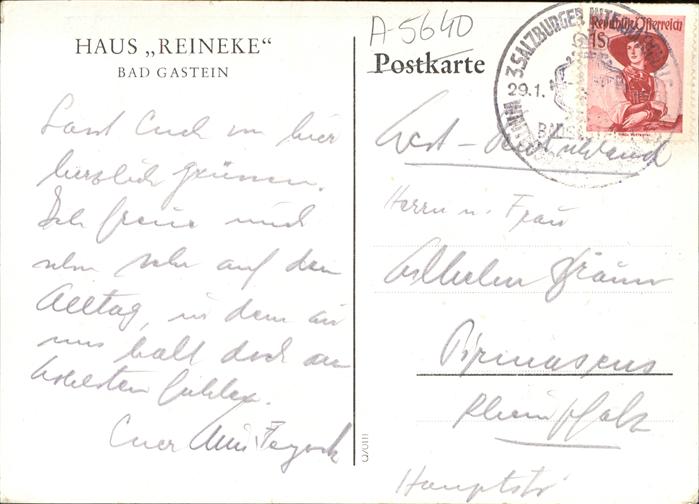 HAUS „REINEKE“
BAD GASTEIN
A-5640
Postkarte
3. SALZBURGER
29.1.
Republik Österreich
1S
Lasst Euch von hier
herzlich grüssen.
Ich freue mich
schon sehr auf den
Alltag, in dem wir
uns halt doch am
wohlsten fühlen.
Euer
West-Deutschland
Herrn u. Frau
Wilhelm Bräun
Pirmasens
Rheinpfalz
Hauptstr